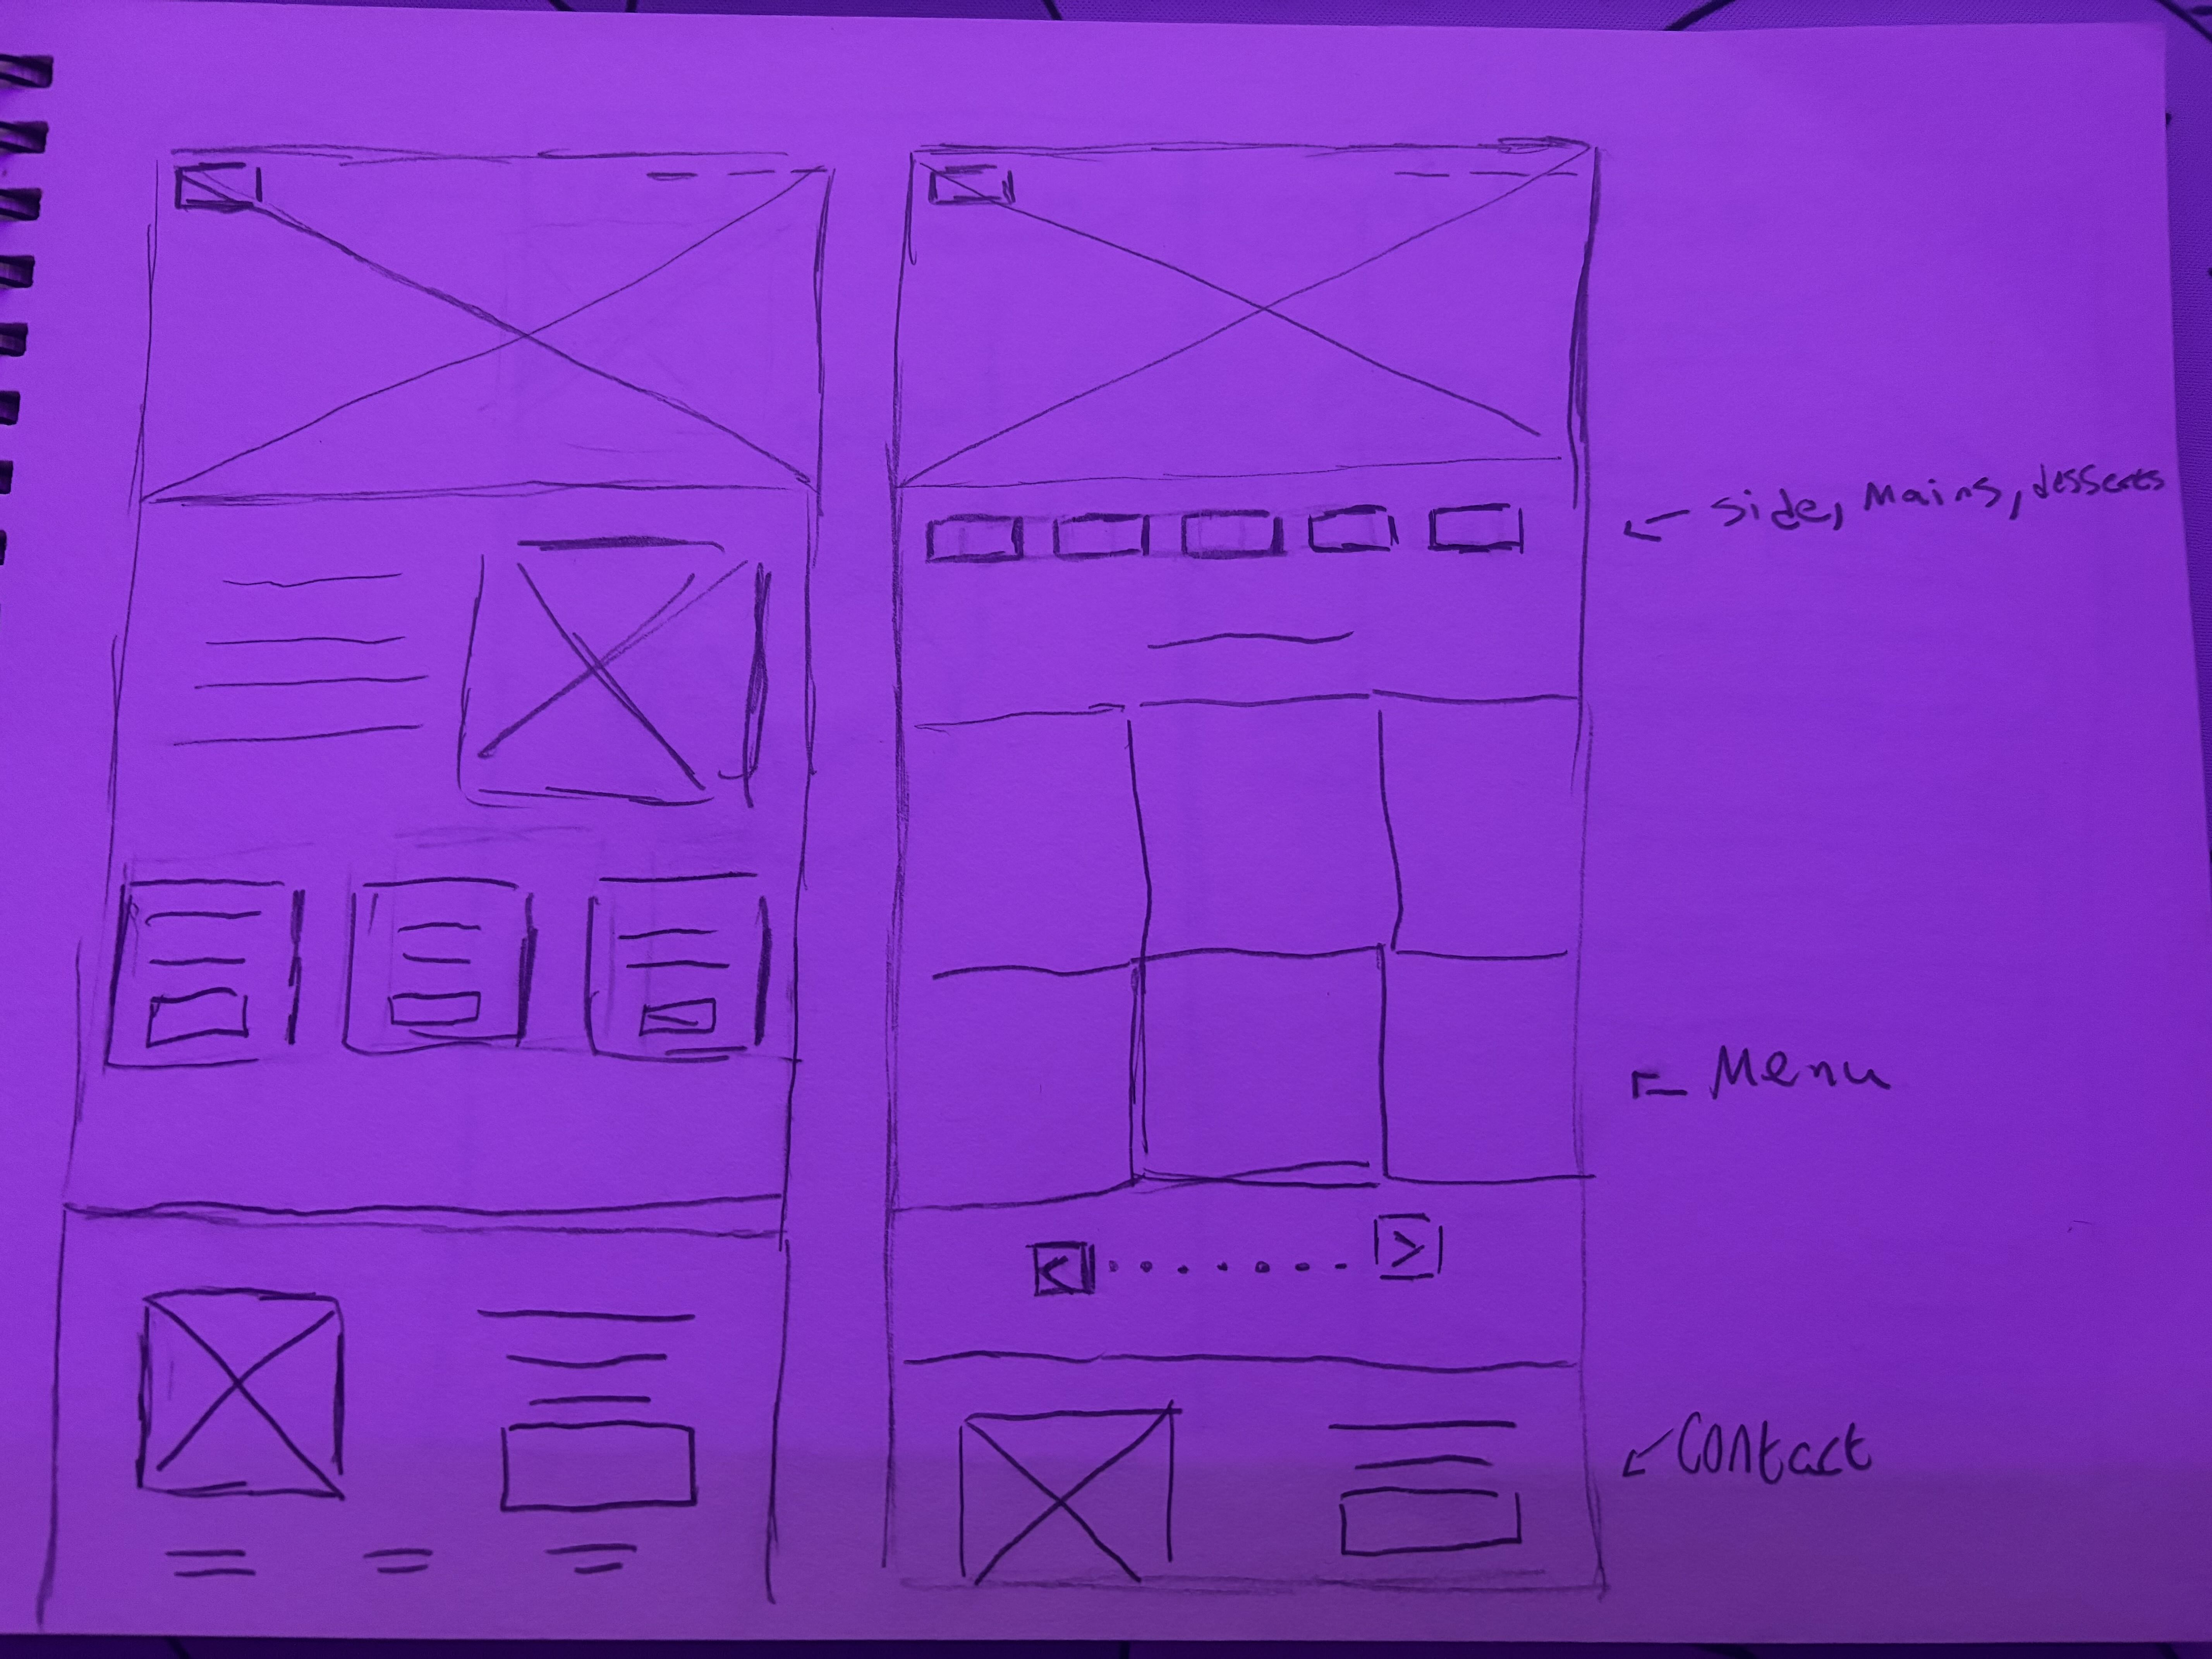 ← side, Mains, desserts
<
>
← Menu
← Contact